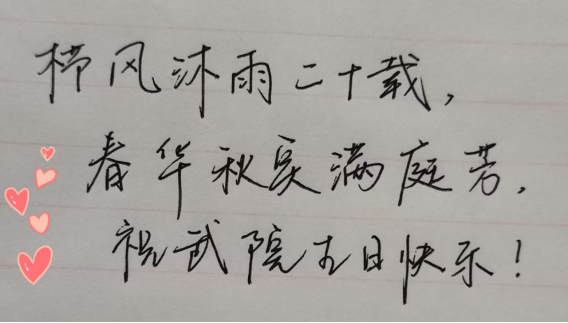 栉风沐雨二十载,
春华秋实满庭芳,
祝武院生日快乐!